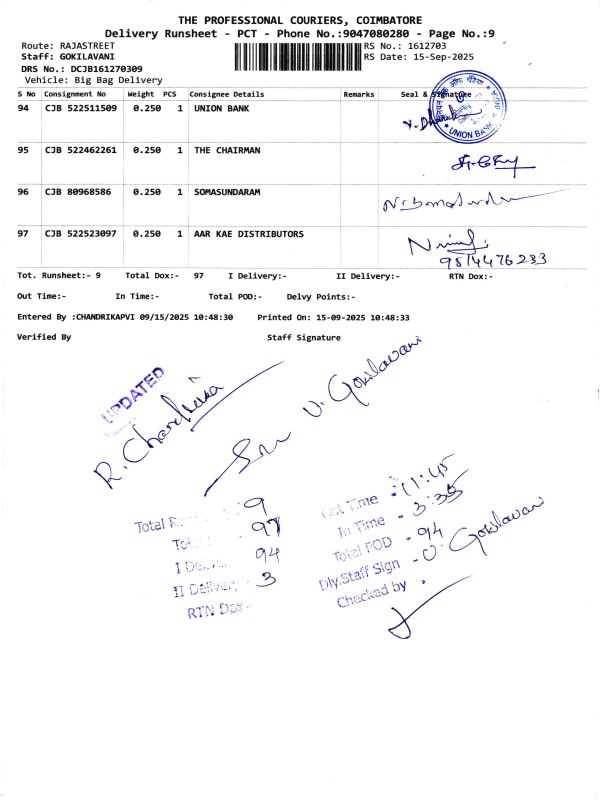 THE PROFESSIONAL COURIERS, COIMBATORE
Delivery Runsheet - PCT - Phone No.:9047080280 - Page No.:9
Route: RAJASTREET RS No.: 1612703
Staff: GOKILAVANI RS Date: 15-Sep-2025
DRS No.: DCJB161270309
Vehicle: Big Bag Delivery
S No Consignment No Weight PCS Consignee Details Remarks Seal & Signature
94 CJB 522511509 0.250 1 UNION BANK
UNION BANK
95 CJB 522462261 0.250 1 THE CHAIRMAN
96 CJB 80968586 0.250 1 SOMASUNDARAM
97 CJB 522523097 0.250 1 AAR KAE DISTRIBUTORS
Tot. Runsheet:- 9 Total Dox:- 97 I Delivery:- II Delivery:- RTN Dox:-
Out Time:- In Time:- Total POD:- Delvy Points:-
Entered By :CHANDRIKAPVI 09/15/2025 10:48:30 Printed On: 15-09-2025 10:48:33
Verified By Staff Signature
UPDATED
R. Chandrika
V. Gokilavani
Total 9
97
I 94
II Delivery 3
RTN Dox-
Out Time - 11:45
In Time - 3:35
Total POD - 94
Dly.Staff Sign - V. Gokilavani
Checked by